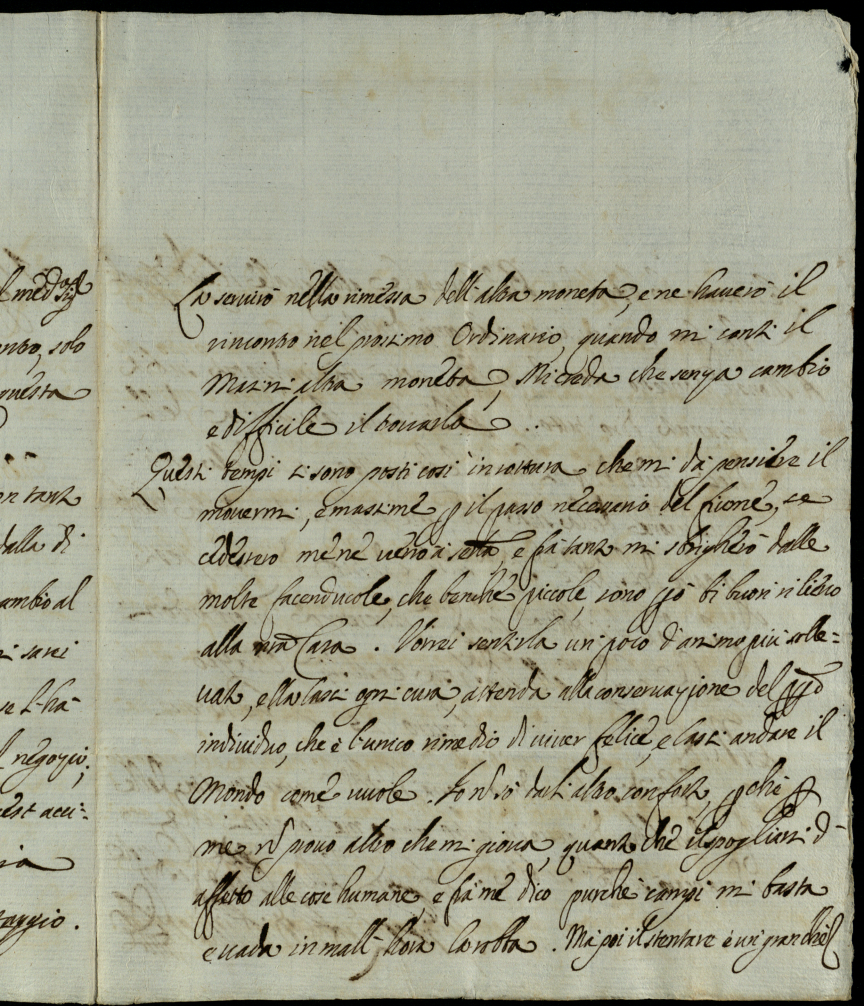 l med.mo Sig.r
ontro, solo
questa
on tanti
dalla di
cambio al
mi sarei
se l'ha
l negozio,
quest acci=
ria
taggio.
La servirò nella rimessa dell'altra moneta, e ne haverò il
rincontro nel prossimo Ordinario, quando mi conti il
Masini altra moneta, Mi creda che senza cambio
è difficile il trovarla ..
Questi tempi si sono posti così in rottura che mi dà pensiere il
movermi, e massime p il passo necessario del fiume, se
cedessero me ne verrò a setta, e frà tanto mi sbrigherò dalle
molte facenducole, che benche piccole, sono pò di buon rilievo
alla nra Casa. Vorrei sentirla un poco d'animo più solle=
vato, ella lasci ogni cura, attenda alla conservazione del pprio
individuo, che è l'unico rimedio di viver felice, e lasci andare il
Mondo come vuole. Io nō sò darli altro conforto, pche p
me nō provo altro che mi giova, quanto che il spogliarsi d
affetto alle cose humane, e frà me dico purche campi mi basta
e vada in mall'hora la robba. Mà poi il stentare è un gran